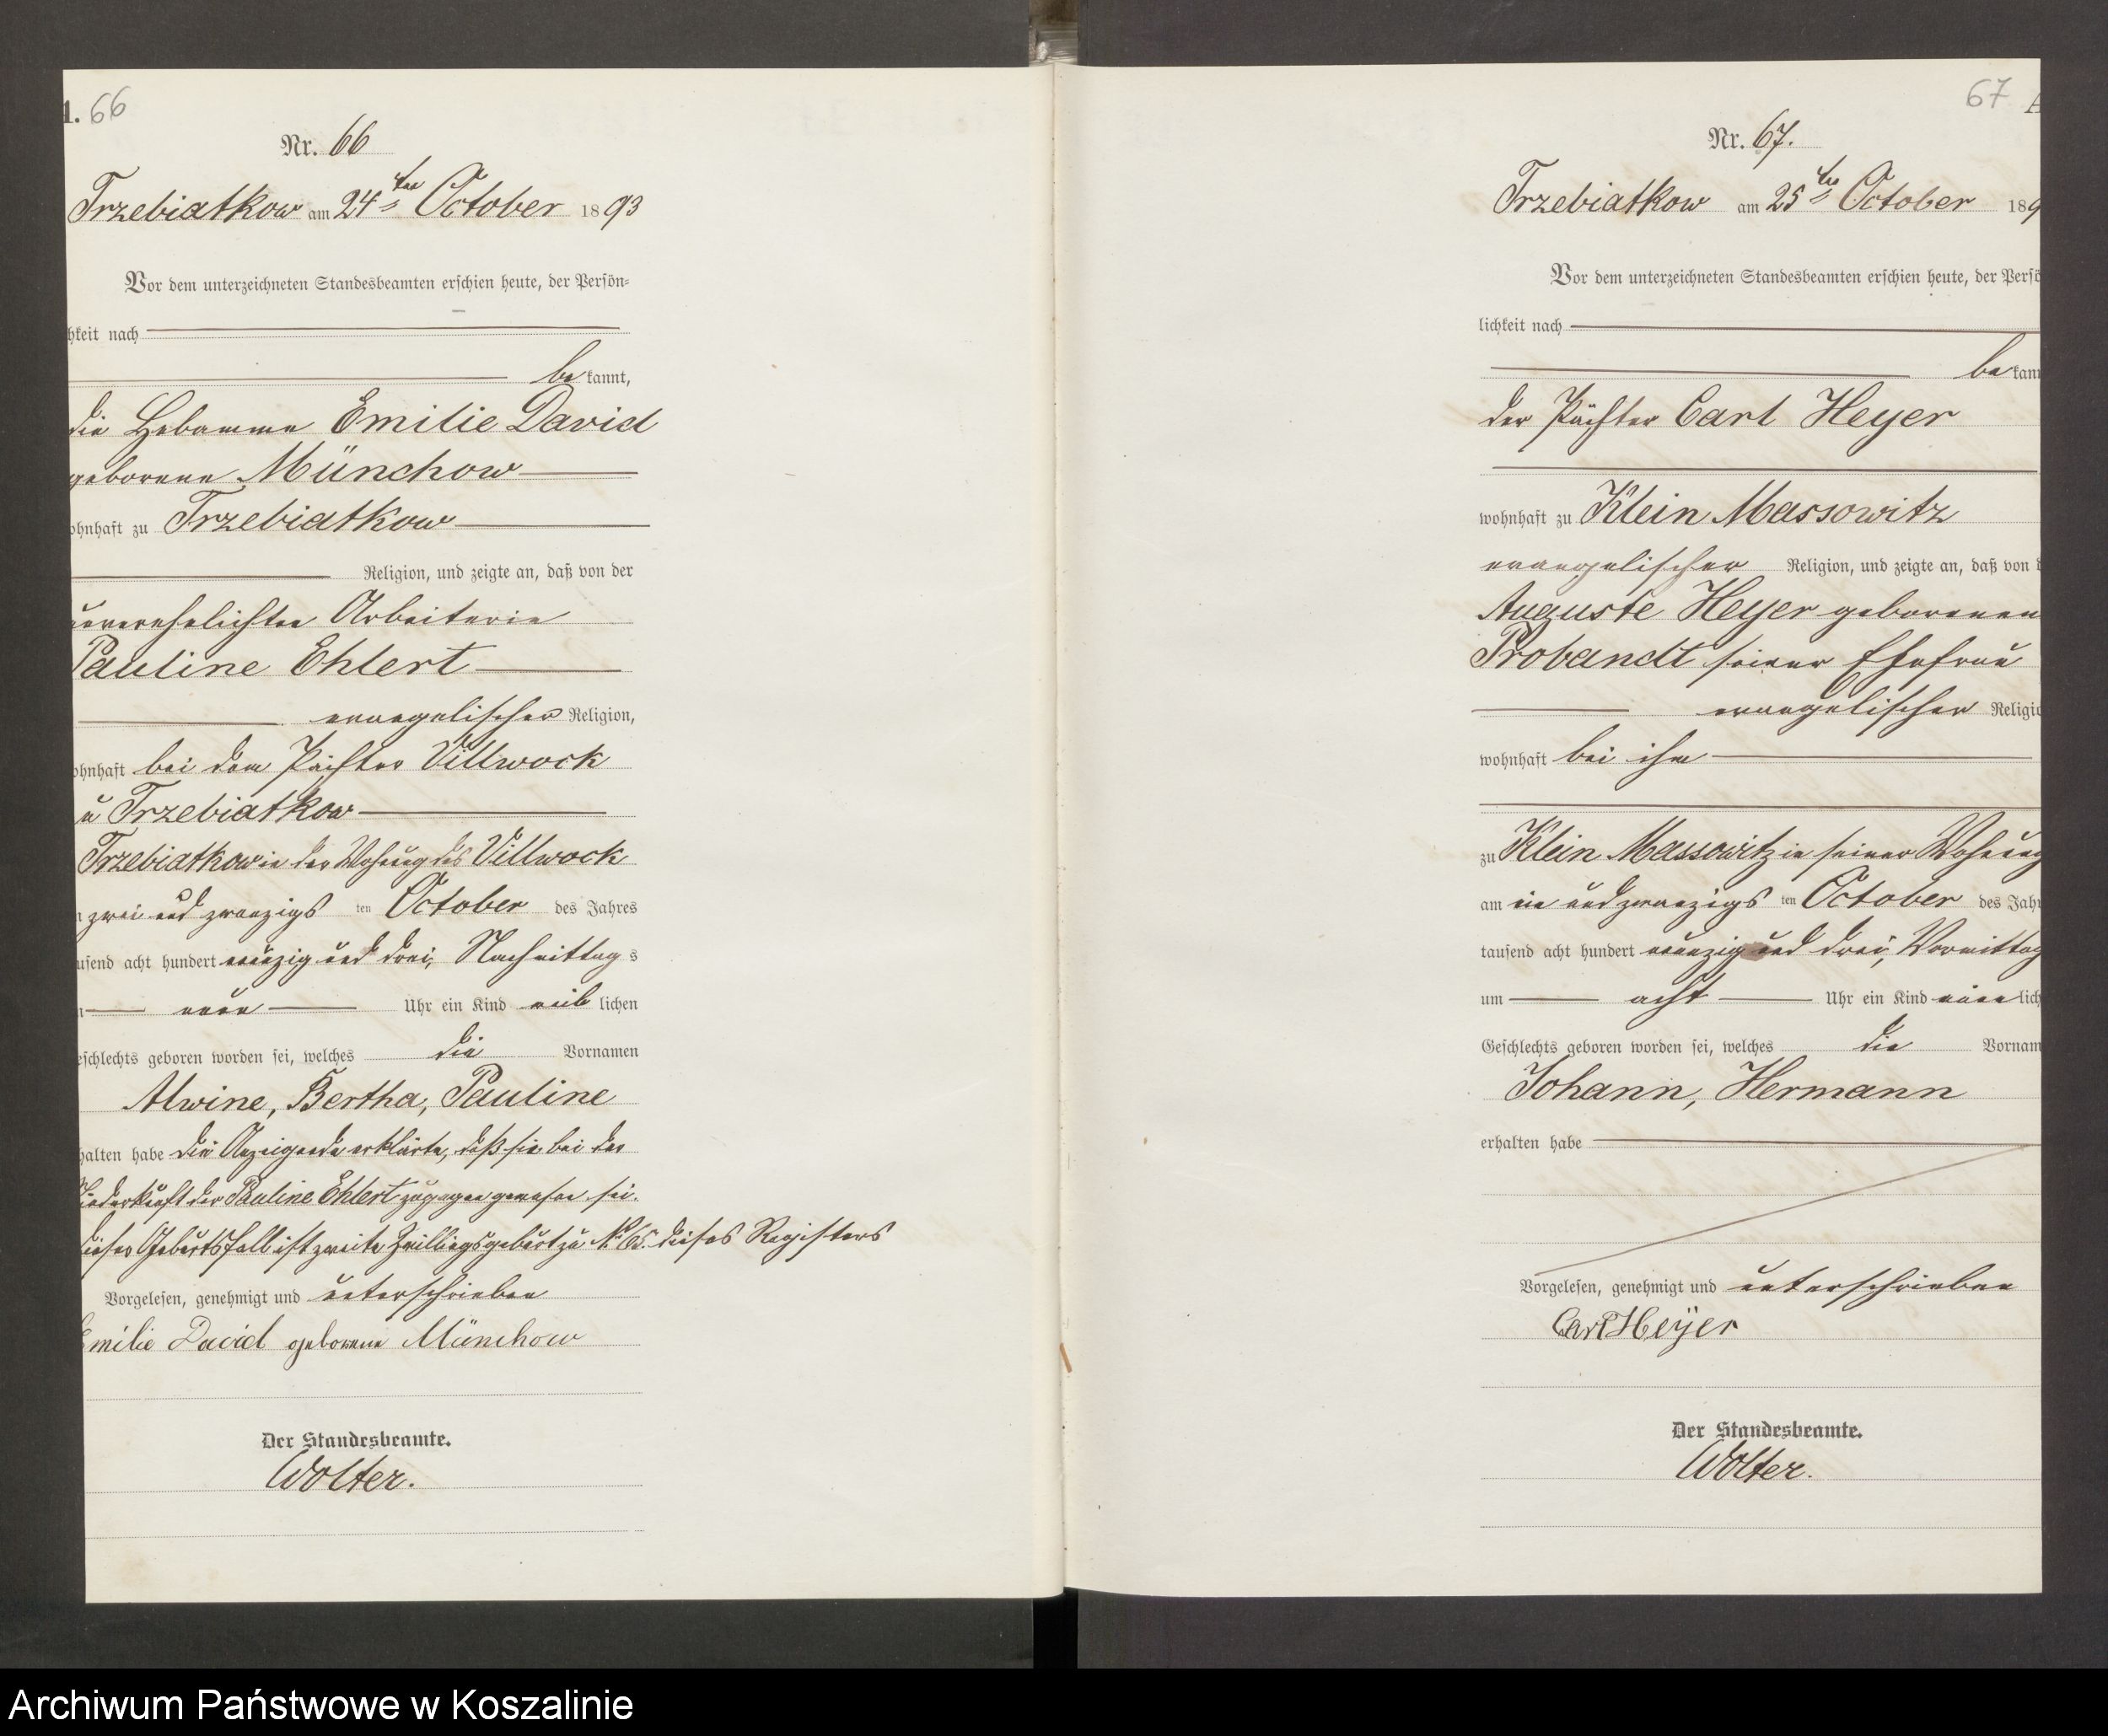 1. 66
Nr. 66
Trzebiatkow am 24ten October 1893
Vor dem unterzeichneten Standesbeamten erschien heute, der Persön-
hkeit nach
be kannt,
die Hebamme Emilie David
geborene Münchow
ohnhaft zu Trzebiatkow
Religion, und zeigte an, daß von der
unverehelichten Arbeiterin
Pauline Ehlert
evangelischer Religion,
ohnhaft bei dem Pächter Villwock
u Trzebiatkow
Trzebiatkow in der Wohnung des Villwock
zwei und zwanzigs ten October des Jahres
usend acht hundert neunzig und drei, Nachmittag s
neun Uhr ein Kind weib lichen
eschlechts geboren worden sei, welches die Vornamen
Alwine, Bertha, Pauline
halten habe die Anzeigende erklärte, daß sie bei der
Niederkunft der Pauline Ehlert zugegen gewesen sei.
dieser Geburtsfall ist zweite Zwillingsgeburt zu No 65. dieses Registers
Vorgelesen, genehmigt und unterschrieben
Emilie David geborene Münchow
Der Standesbeamte.
Wolter.
67 A
Nr. 67.
Trzebiatkow am 25ten October 189
Vor dem unterzeichneten Standesbeamten erschien heute, der Persö
lichkeit nach
be kann
der Pächter Carl Heyer
wohnhaft zu Klein Massowitz
evangelischer Religion, und zeigte an, daß von d
Auguste Heyer geborenen
Probandt seiner Ehefrau
evangelischer Religio
wohnhaft bei ihm
zu Klein Massowitz in seiner Wohnung
am ein und zwanzigs ten October des Jahr
tausend acht hundert neunzig und drei, Vormittag
um acht Uhr ein Kind männ lich
Geschlechts geboren worden sei, welches die Vornam
Johann, Hermann
erhalten habe
Vorgelesen, genehmigt und unterschrieben
Carl Heyer
Der Standesbeamte.
Wolter.
Archiwum Państwowe w Koszalinie